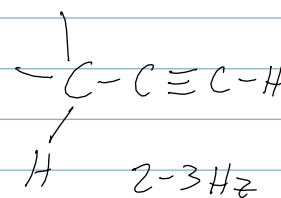 C-C≡C-H
H
2-3Hz